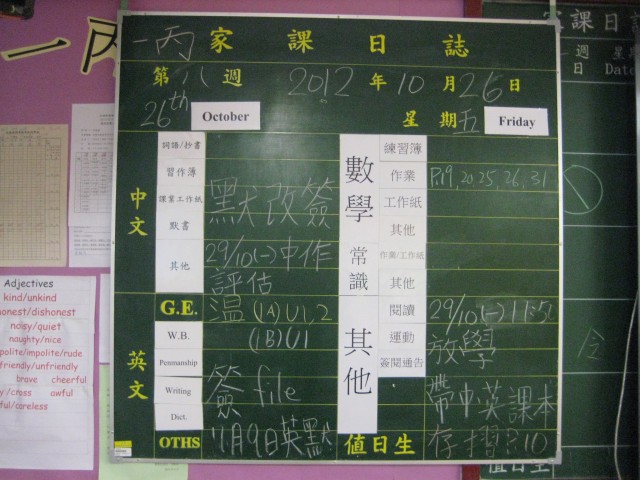 一丙 家課日誌
第八週 2012年10月26日
26th October 星期五 Friday
中文
詞語/抄書
習作簿
課業工作紙
默書 默改簽
其他 29/10(一)中作
評估
英文
G.E. 温 (1A) U1,2
W.B. (1B) U1
Penmanship
Writing 簽 file
Dict.
OTHS 11月9日英默
數學
練習簿
作業 P.19, 20, 25, 26, 31
工作紙
其他
常識
作業/工作紙
其他
其他
閱讀 29/10(一)
運動 放學
簽閱通告
帶中英課本
值日生 存摺
一丙
家課日
Date
值日生
Adjectives
kind/unkind
honest/dishonest
noisy/quiet
naughty/nice
polite/impolite/rude
friendly/unfriendly
brave cheerful
/cross awful
ful/careless